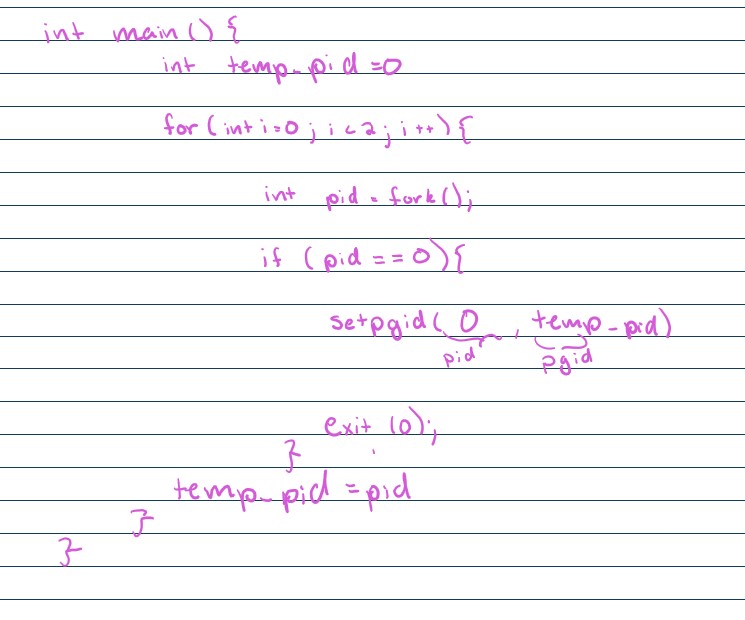 int main() {
int temp_pid = 0
for (int i=0; i<2; i++) {
int pid = fork();
if (pid == 0) {
setpgid( 0 , temp_pid)
pid pgid
exit (0);
}
temp_pid = pid
}
}